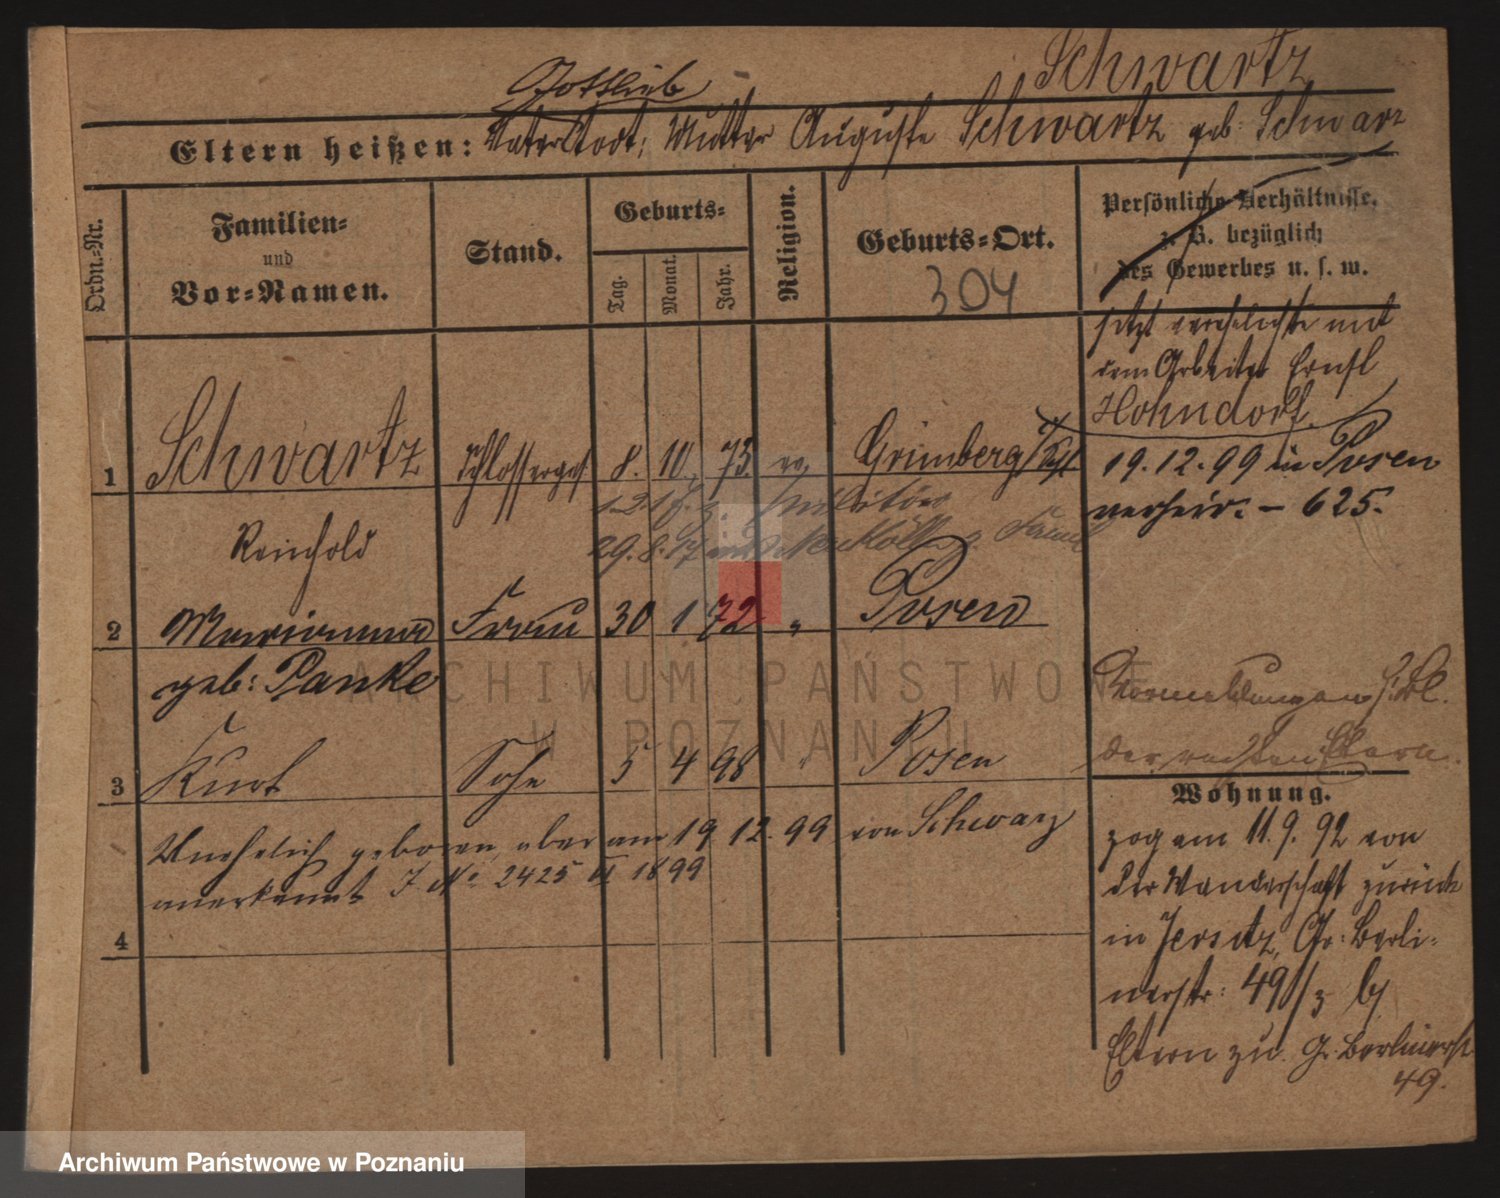 Schwartz
Gottlieb
Eltern heißen: Vater todt, Mutter Auguste Schwartz geb: Schwarz
Ordn.-Nr.
Familien-
und
Vor-Namen.
Stand.
Geburts-
Tag.
Monat.
Jahr.
Religion.
Geburts-Ort.
304
Persönliche Verhältnisse,
z. B. bezüglich
des Gewerbes u. s. w.
jetzt verehelichte mit
dem Arbeiter Ernst
Hohndorf.
1 Schwartz Schlosserges. 8. 10. 73 ev. Grünberg
19.12.99 in Posen
verheir. – 625.
Militär
Reinhold
29.8.17
2 Marianna Frau 30 1 72 " Posen
geb: Panke
3 Kurt Sohn 5 4 98 " Posen
Unehelich geboren, aber am 19 12. 99 von Schwarz
anerkannt J. No. 2425 II 1899
4
Wohnung.
zog am 11.9.92 von
der Wanderschaft zurück
in Jersitz, Gr: Berli-
nerstr: 49 b/
Eltern zu. Gr. Berlinerst
49.
ARCHIWUM PAŃSTWOWE
W POZNANIU
Archiwum Państwowe w Poznaniu